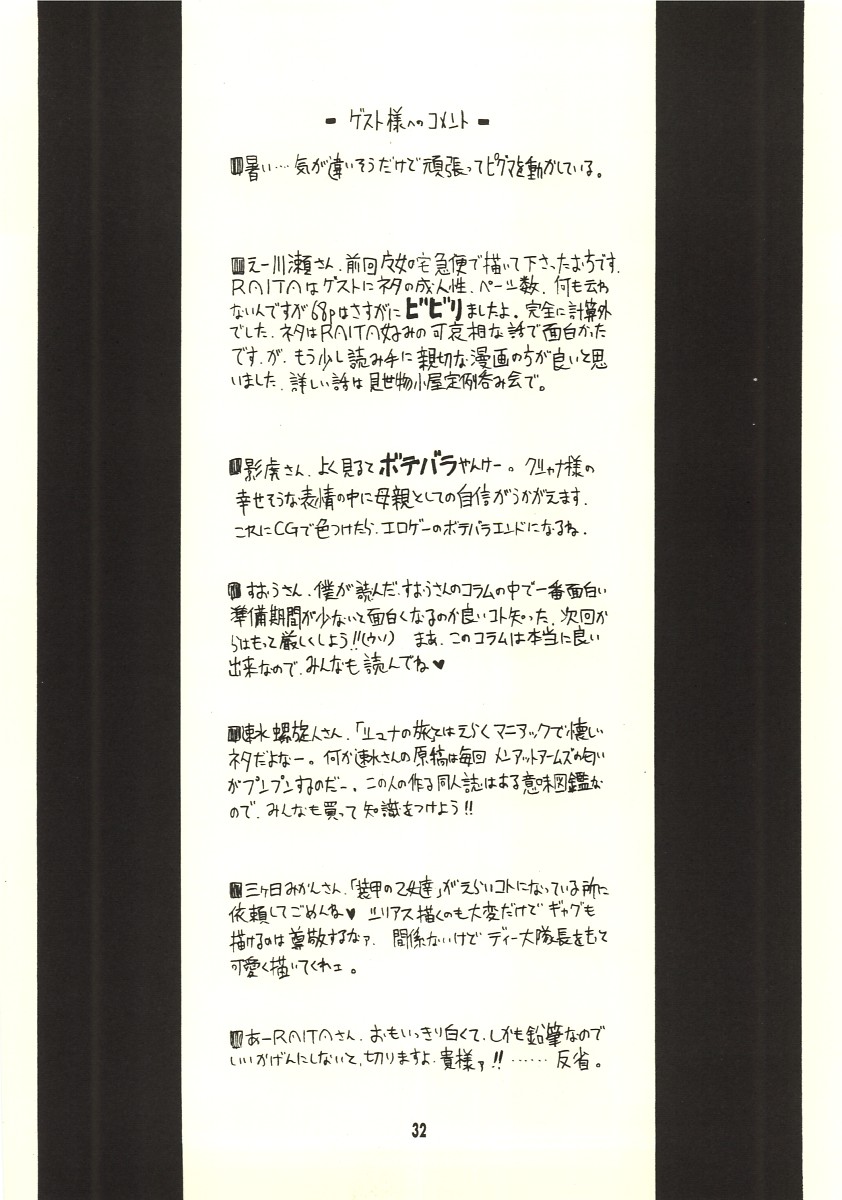 - ゲスト様へのコメント -
暑い…気が違いそうだけで頑張ってピグマを動かしている。
えー川瀬さん、前回魔女の宅急便で描いて下さったまちです。
RAITAはゲストにネタの成人性、ページ数、何も云わ
ないんですが68pはさすがにビビりましたよ。完全に計算外
でした。ネタはRAITA好みの可哀相な話で面白かった
ですが、もう少し読み手に親切な漫画の方が良いと思
いました。詳しい話は見世物小屋定例呑み会で。
影虎さん、よく見るとボテバラやんけー。クシャナ様の
幸せそうな表情の中に母親としての自信がうかがえます。
これにCGで色つけたら、エロゲーのボテバラエンドになるね。
すおうさん、僕が読んだ、すおうさんのコラムの中で一番面白い
準備期間が少ないと面白くなるのか良いコト知った、次回か
らはもっと厳しくしよう!!(ウソ) まあ、このコラムは本当に良い
出来なので、みんなも読んでね♥
速水螺旋人さん、「シュナの旅」とはえらくマニアックで懐しい
ネタだよなー。何か速水さんの原稿は毎回 メンアットアームズの匂い
がプンプンするのだー。この人の作る同人誌はある意味図鑑な
ので、みんなも買って知識をつけよう!!
三ヶ日みかんさん、「装甲の乙女達」がえらいコトになっている所に
依頼してごめんね♥ シリアス描くのも大変だけでギャグも
描けるのは尊敬するなァ。 間係ないけで ディー大隊長をもて
可愛く描いてくれェ。
あーRAITAさん、おもいっきり白くて、しかも鉛筆なので
いいかげんにしないと、切りますよ、貴様ァ!!……反省。
32